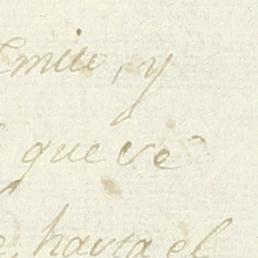 Emite, y
que se
hasta el